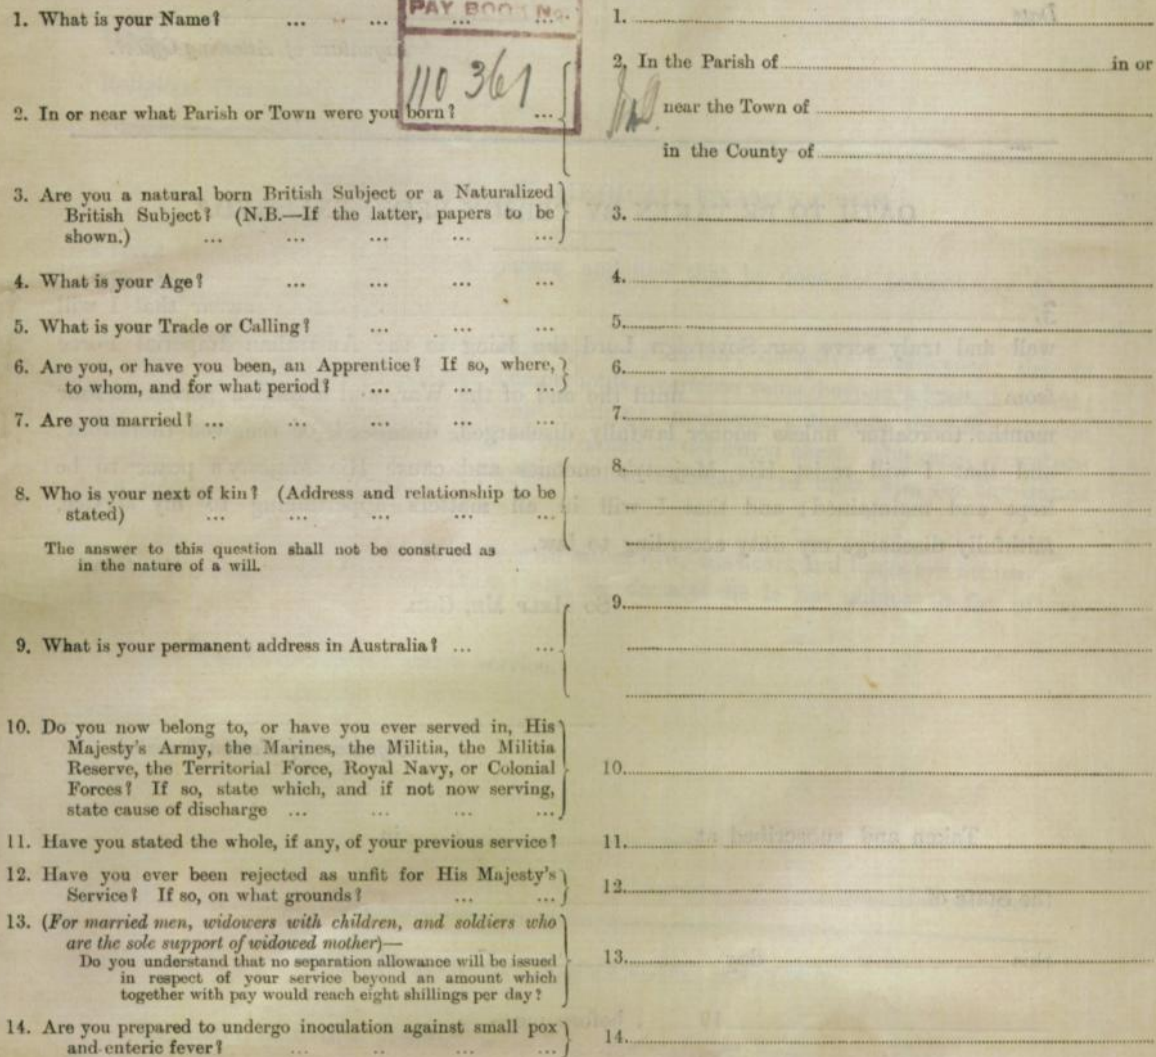 1. What is your Name? ... ... ... ... 1.
PAY BOOK No.
110 361
2. In or near what Parish or Town were you born? ...
2. In the Parish of in or
near the Town of
in the County of
3. Are you a natural born British Subject or a Naturalized
British Subject? (N.B.—If the latter, papers to be
shown.) ... ... ... ... ...
3.
4. What is your Age? ... ... ... ... 4.
5. What is your Trade or Calling? ... ... ... 5.
6. Are you, or have you been, an Apprentice? If so, where,
to whom, and for what period? ... ... ...
6.
7. Are you married? ... ... ... ... ... 7.
8. Who is your next of kin? (Address and relationship to be
stated) ... ... ... ... ...
The answer to this question shall not be construed as
in the nature of a will.
8.
9. What is your permanent address in Australia? ... ...
9.
10. Do you now belong to, or have you ever served in, His
Majesty's Army, the Marines, the Militia, the Militia
Reserve, the Territorial Force, Royal Navy, or Colonial
Forces? If so, state which, and if not now serving,
state cause of discharge ... ... ... ...
10.
11. Have you stated the whole, if any, of your previous service? 11.
12. Have you ever been rejected as unfit for His Majesty's
Service? If so, on what grounds? ... ...
12.
13. (For married men, widowers with children, and soldiers who
are the sole support of widowed mother)—
Do you understand that no separation allowance will be issued
in respect of your service beyond an amount which
together with pay would reach eight shillings per day?
13.
14. Are you prepared to undergo inoculation against small pox
and enteric fever? ... .. ... ...
14.